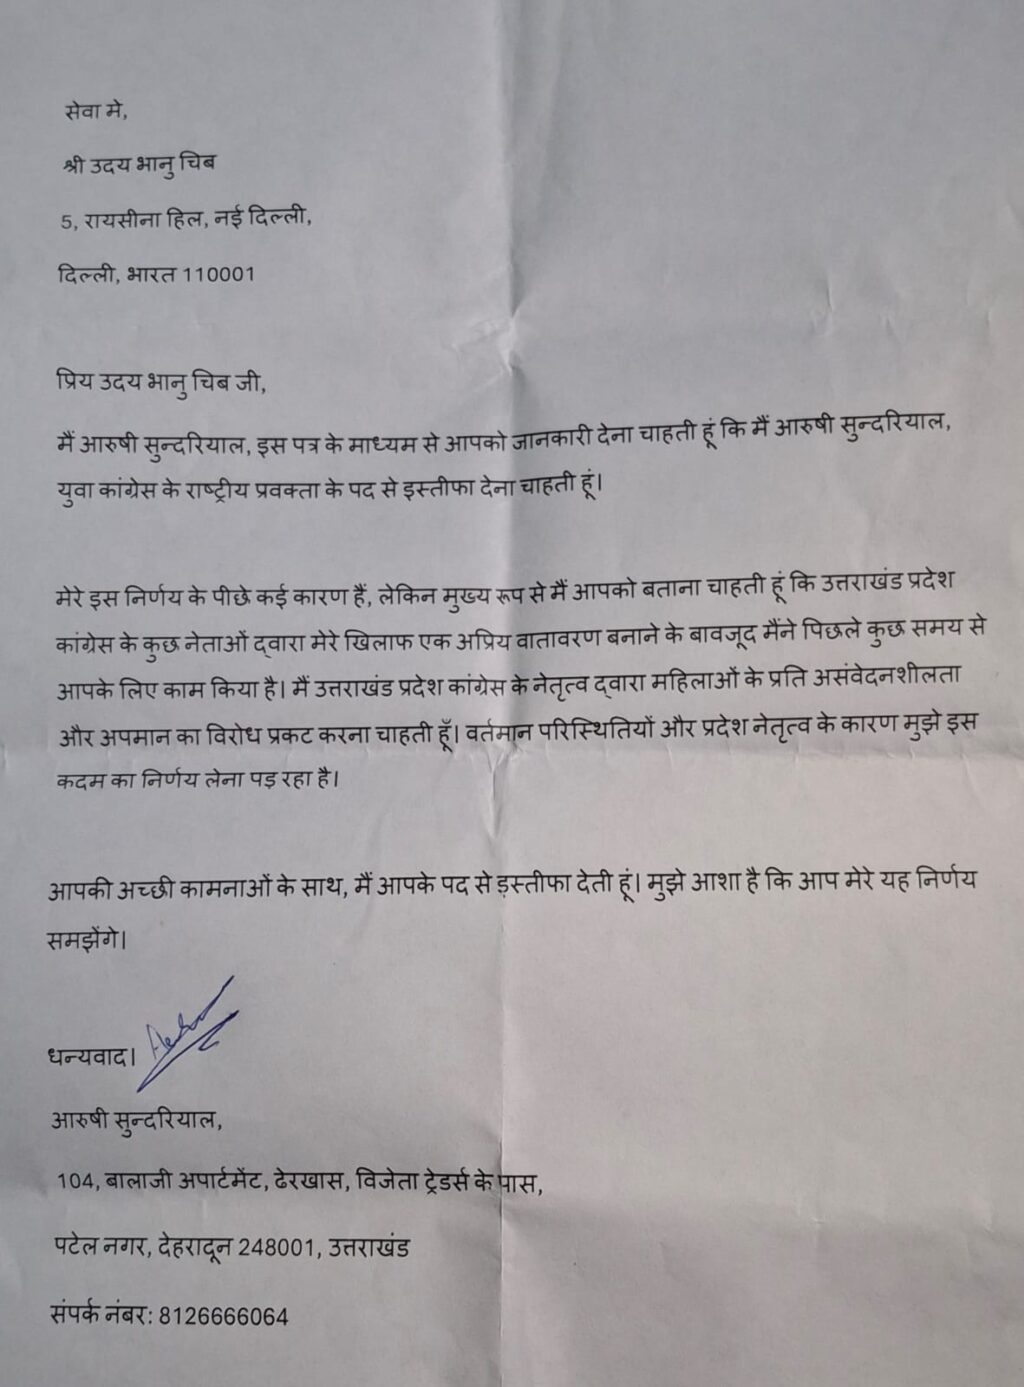 सेवा मे,
श्री उदय भानु चिब
5, रायसीना हिल, नई दिल्ली,
दिल्ली, भारत 110001
प्रिय उदय भानु चिब जी,
मैं आरुषी सुन्दरियाल, इस पत्र के माध्यम से आपको जानकारी देना चाहती हूं कि मैं आरुषी सुन्दरियाल,
युवा कांग्रेस के राष्ट्रीय प्रवक्ता के पद से इस्तीफा देना चाहती हूं।
मेरे इस निर्णय के पीछे कई कारण हैं, लेकिन मुख्य रूप से मैं आपको बताना चाहती हूं कि उत्तराखंड प्रदेश
कांग्रेस के कुछ नेताओं द्वारा मेरे खिलाफ एक अप्रिय वातावरण बनाने के बावजूद मैंने पिछले कुछ समय से
आपके लिए काम किया है। मैं उत्तराखंड प्रदेश कांग्रेस के नेतृत्व द्वारा महिलाओं के प्रति असंवेदनशीलता
और अपमान का विरोध प्रकट करना चाहती हूँ। वर्तमान परिस्थितियों और प्रदेश नेतृत्व के कारण मुझे इस
कदम का निर्णय लेना पड़ रहा है।
आपकी अच्छी कामनाओं के साथ, मैं आपके पद से इस्तीफा देती हूं। मुझे आशा है कि आप मेरे यह निर्णय
समझेंगे।
धन्यवाद।
आरुषी सुन्दरियाल,
104, बालाजी अपार्टमेंट, ढेरखास, विजेता ट्रेडर्स के पास,
पटेल नगर, देहरादून 248001, उत्तराखंड
संपर्क नंबर: 8126666064